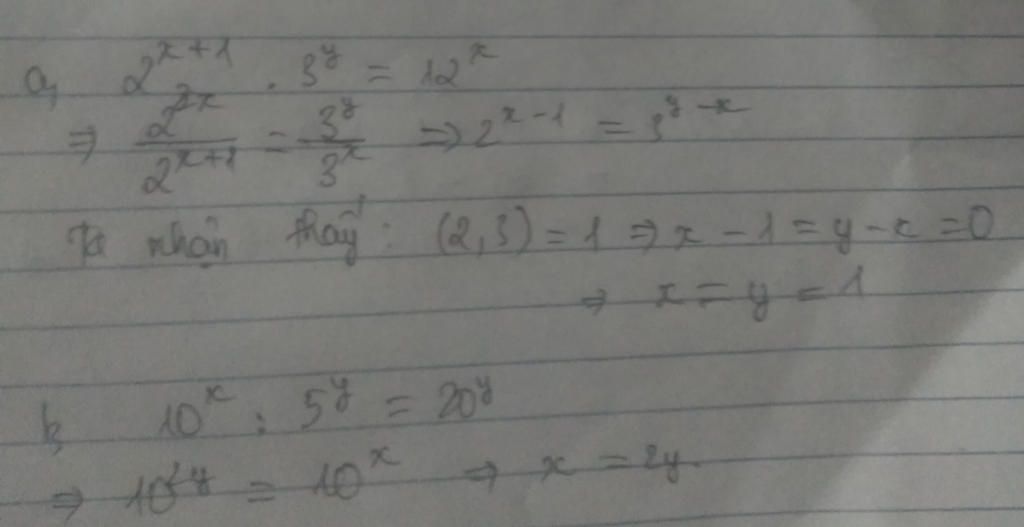 a, 2^{x+1} . 3^y = 12^x
⇒ \frac{2^{2x}}{2^{x+1}} = \frac{3^y}{3^x} ⇒ 2^{x-1} = 3^{y-x}
Ta nhận thấy: (2,3) = 1 ⇒ x - 1 = y - x = 0
⇒ x = y = 1
b, 10^x : 5^y = 20^y
⇒ 10^{2y} = 10^x ⇒ x = 2y.